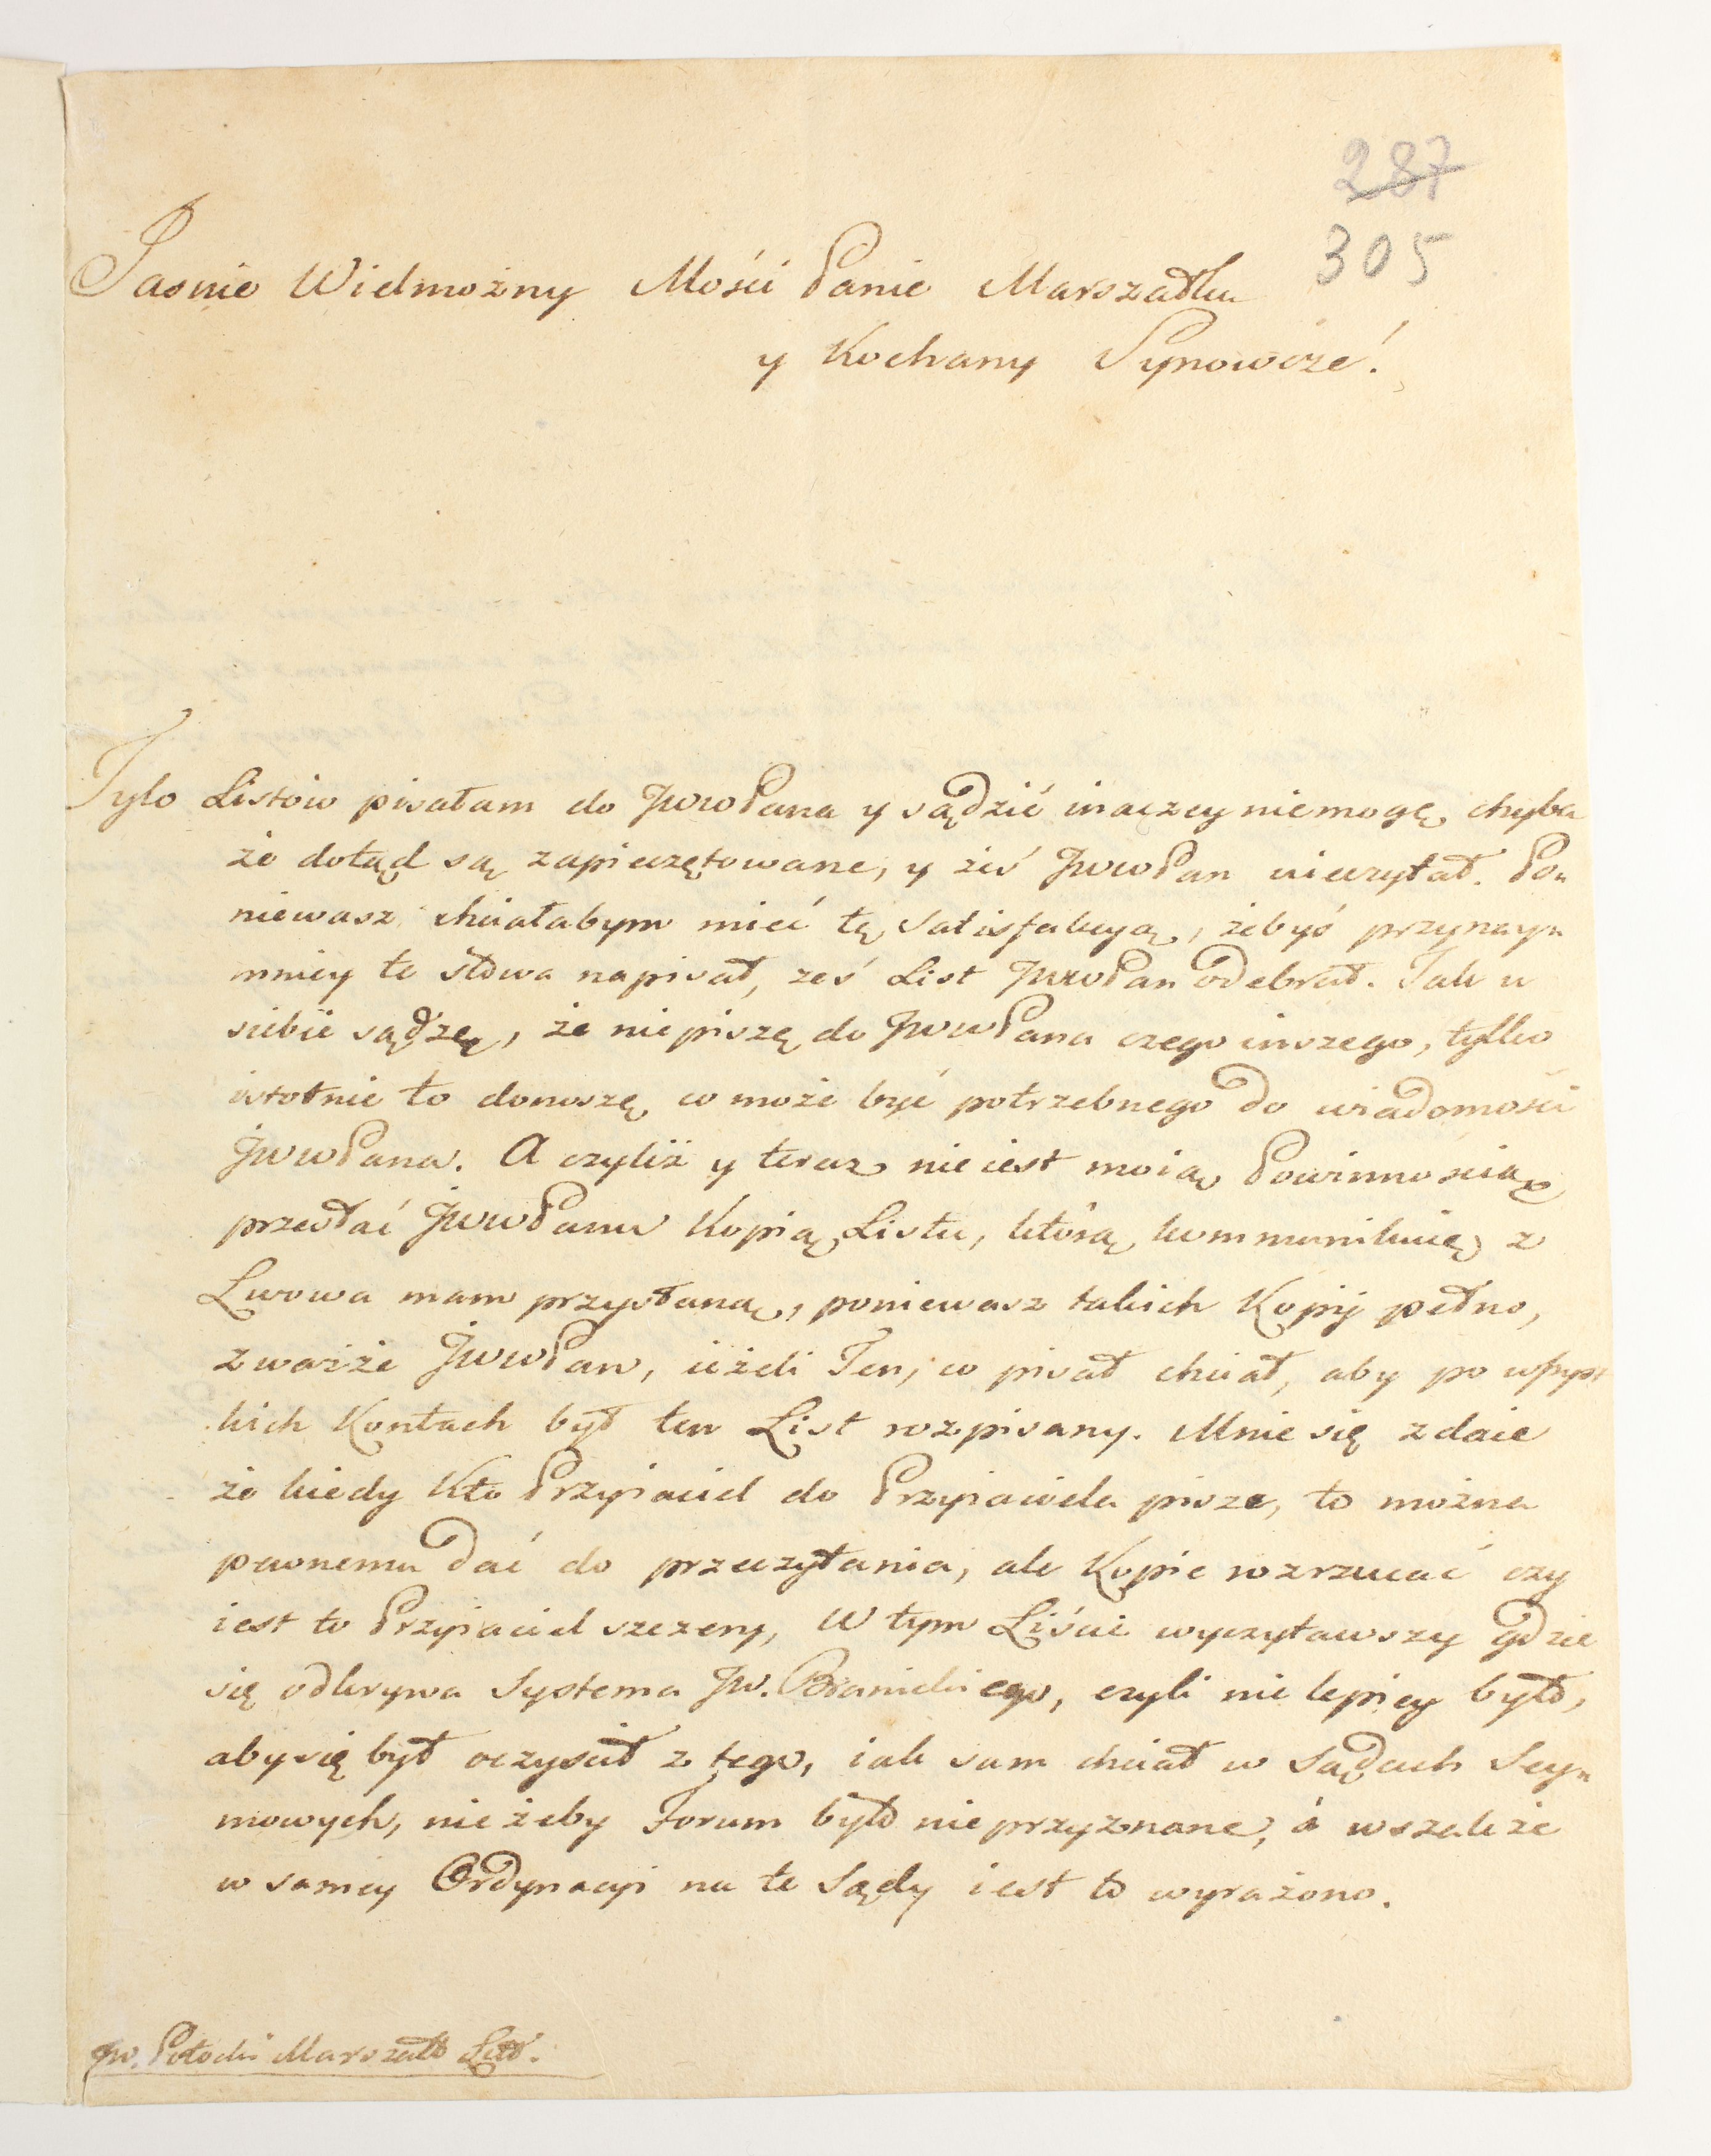 287
305
Jasnie Wielmożny Mości Panie Marszałku
y Kochany Synowcze!
Tylo Listow pisałam do JwwPana y sądzić inaczey niemogę, chyba
że dotąd są zapieczętowane, y żeś JwwPan nieczytał. Po„
niewasz chciałabym mieć tę satisfakcyą, żebyś przynay„
mniey te słowa napisał, żeś List JwwPan odebrał. Tak u
siebie sądzę, że niepiszę do JwwPana czego inszego, tylko
istotnie to donoszę, co może być potrzebnego do wiadomości
JwwPana. A czyliż y teraz nie iest moią Powinnością
przesłać JwwPanu Kopią Listu, którą kommunikuię z
Lwowa mam przysłaną, poniewasz takich Kopij pełno,
zważże JwwPan, ieżeli Ten, co pisał chciał, aby po wszyst
kich Kontach był ten List rozpisany. Mnie się zdaie
że kiedy Kto Przyiaciel do Przyiaciela pisze, to można
pewnemu dać do przeczytania, ale Kopie rozrzucać czy
iest to Przyiaciel szczery, W tym Liście wyczytawszy gdzie
się odkrywa Systema Jw. Branickiego, czyli nie lepiey było,
aby się był oczyścił z tego, iak sam chciał w Sądach Sey„
mowych, nie żeby Forum było nieprzyznane, á wszakże
w samey Ordynacyi na te Sądy iest to wyrażono.
Jw. Potocki Marszałk Litt.